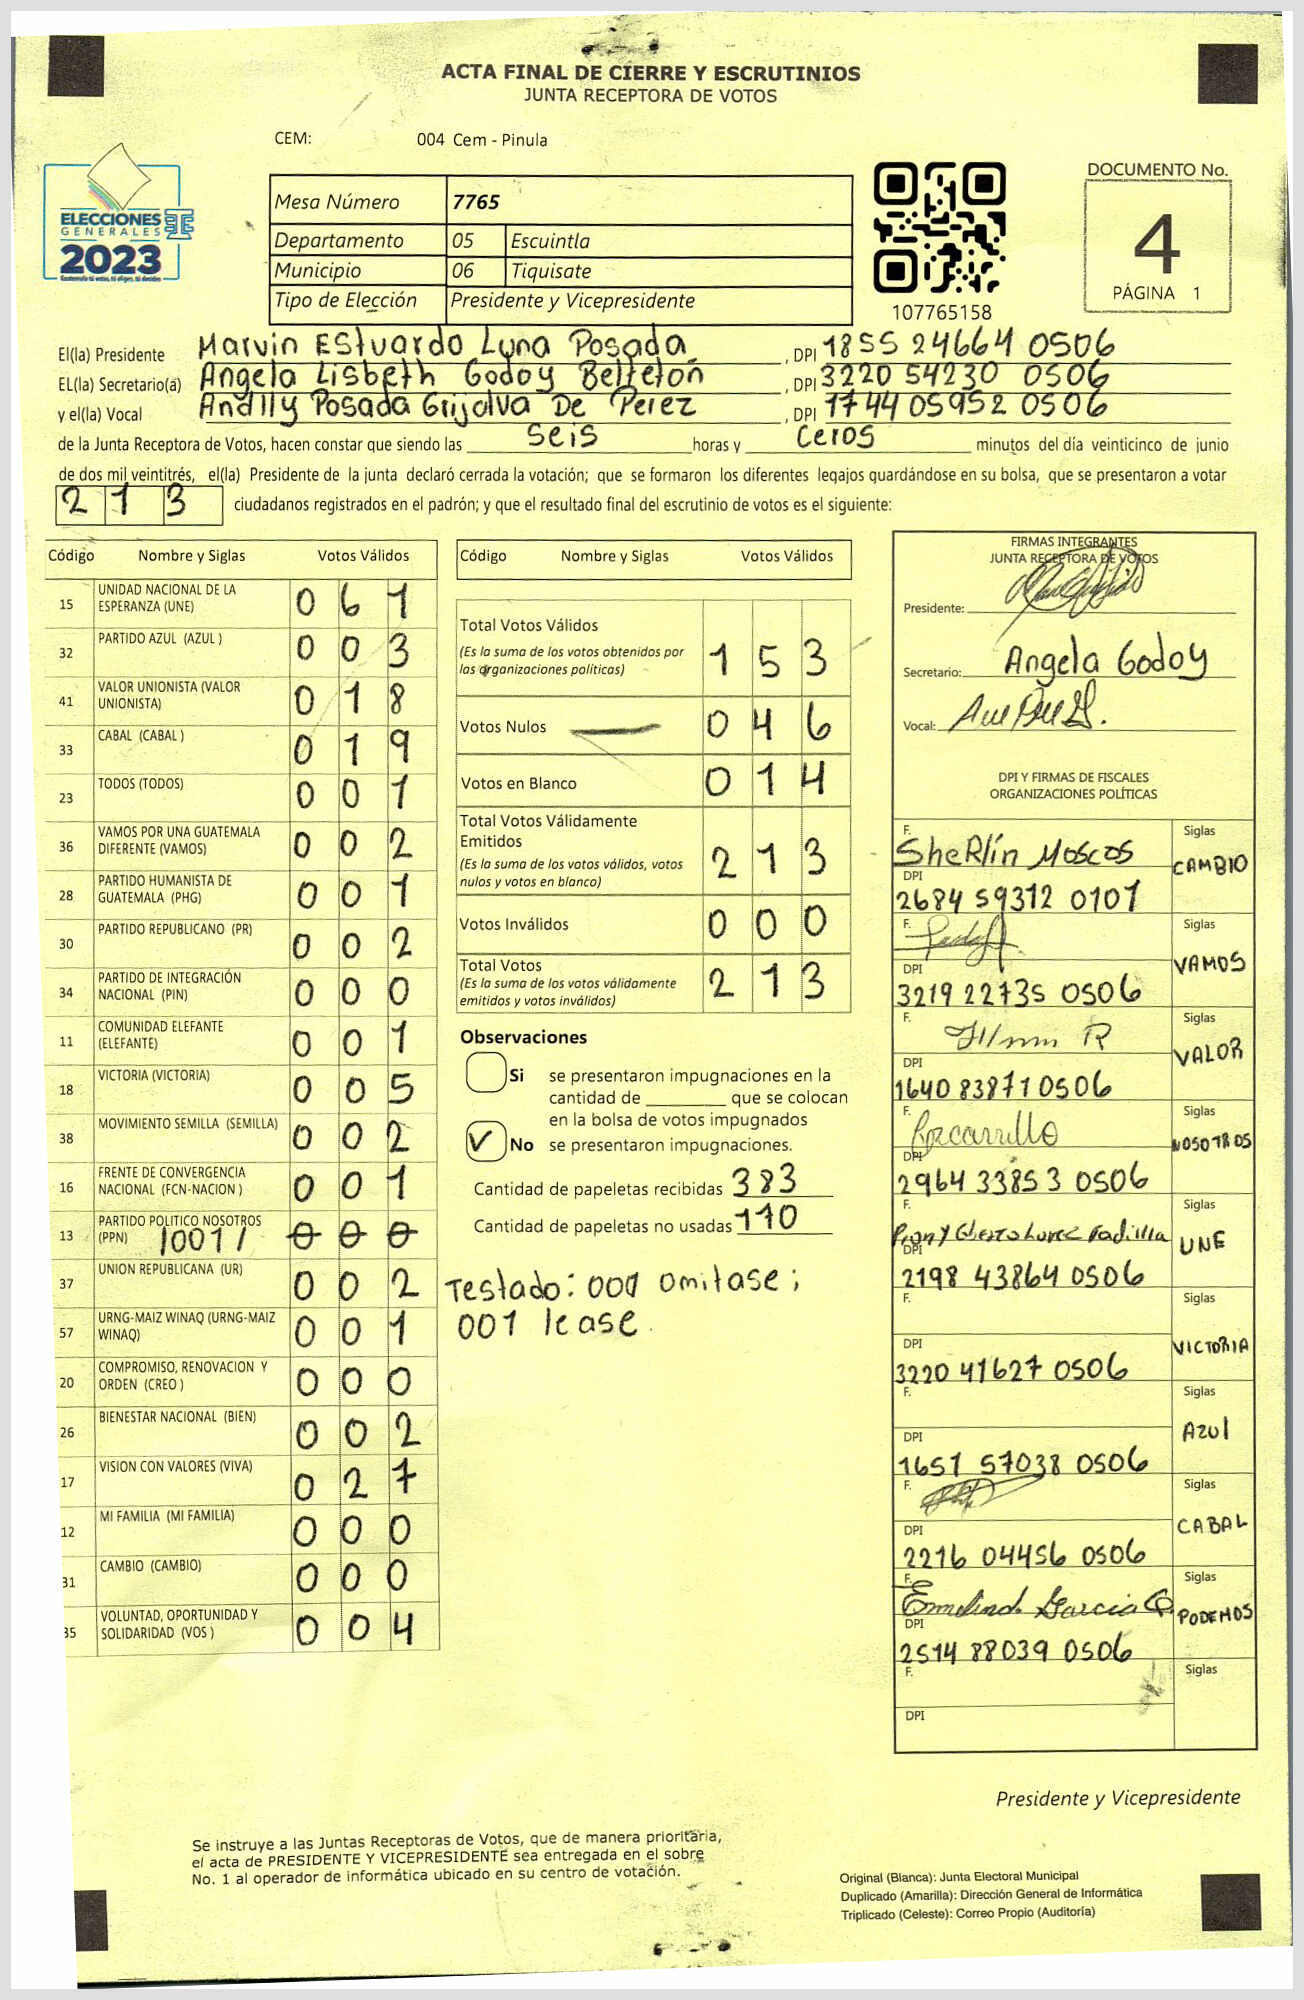 ACTA FINAL DE CIERRE Y ESCRUTINIOS
JUNTA RECEPTORA DE VOTOS
CEM: 004 Cem - Pinula
ELECCIONES
GENERALES
2023
Mesa Número 7765
Departamento 05 Escuintla
Municipio 06 Tiquisate
Tipo de Elección Presidente y Vicepresidente
107765158
DOCUMENTO No.
4
PÁGINA 1
El(la) Presidente Marvin EStuardo Luna Posada, DPI 1855 24664 0506
EL(la) Secretario(a) Angela Lisbeth Godoy Belteton, DPI 3220 54230 0506
y el(la) Vocal Andlly Posada Grijalva De Perez, DPI 1744 05952 0506
de la Junta Receptora de Votos, hacen constar que siendo las seis horas y ceros minutos del día veinticinco de junio
de dos mil veintitrés, el(la) Presidente de la junta declaró cerrada la votación; que se formaron los diferentes legajos guardándose en su bolsa, que se presentaron a votar
213 ciudadanos registrados en el padrón; y que el resultado final del escrutinio de votos es el siguiente:
Código Nombre y Siglas Votos Válidos
15 UNIDAD NACIONAL DE LA ESPERANZA (UNE) 061
32 PARTIDO AZUL (AZUL ) 003
41 VALOR UNIONISTA (VALOR UNIONISTA) 018
33 CABAL (CABAL ) 019
23 TODOS (TODOS) 001
36 VAMOS POR UNA GUATEMALA DIFERENTE (VAMOS) 002
28 PARTIDO HUMANISTA DE GUATEMALA (PHG) 001
30 PARTIDO REPUBLICANO (PR) 002
34 PARTIDO DE INTEGRACIÓN NACIONAL (PIN) 000
11 COMUNIDAD ELEFANTE (ELEFANTE) 001
18 VICTORIA (VICTORIA) 005
38 MOVIMIENTO SEMILLA (SEMILLA) 002
16 FRENTE DE CONVERGENCIA NACIONAL (FCN-NACION ) 001
13 PARTIDO POLITICO NOSOTROS (PPN) /001/ 000
37 UNION REPUBLICANA (UR) 002
57 URNG-MAIZ WINAQ (URNG-MAIZ WINAQ) 001
20 COMPROMISO, RENOVACION Y ORDEN (CREO ) 000
26 BIENESTAR NACIONAL (BIEN) 002
17 VISION CON VALORES (VIVA) 027
12 MI FAMILIA (MI FAMILIA) 000
31 CAMBIO (CAMBIO) 000
35 VOLUNTAD, OPORTUNIDAD Y SOLIDARIDAD (VOS ) 004
Código Nombre y Siglas Votos Válidos
Total Votos Válidos
(Es la suma de los votos obtenidos por
las organizaciones políticas) 153
Votos Nulos 046
Votos en Blanco 014
Total Votos Válidamente
Emitidos
(Es la suma de los votos válidos, votos
nulos y votos en blanco) 213
Votos Inválidos 000
Total Votos
(Es la suma de los votos válidamente
emitidos y votos inválidos) 213
Observaciones
Si se presentaron impugnaciones en la
cantidad de ________ que se colocan
en la bolsa de votos impugnados
✓ No se presentaron impugnaciones.
Cantidad de papeletas recibidas 383
Cantidad de papeletas no usadas 170
Testado: 000 omitase;
001 lease.
FIRMAS INTEGRANTES
JUNTA RECEPTORA DE VOTOS
Presidente:
Secretario: Angela Godoy
Vocal:
DPI Y FIRMAS DE FISCALES
ORGANIZACIONES POLÍTICAS
F. SheRlín Moscos Siglas CAMBIO
DPI 2684 59312 0101
F. Siglas VAMOS
DPI 3219 22735 0506
F. Siglas VALOR
DPI 1640 83871 0506
F. Siglas NOSOTROS
DPI 2964 33853 0506
F. Siglas UNE
DPI 2198 43864 0506
F. Siglas VICTORIA
DPI 3220 41627 0506
F. Siglas Azul
DPI 1651 57038 0506
F. Siglas CABAL
DPI 2216 04456 0506
F. Siglas PODEMOS
DPI 2514 88039 0506
F. Siglas
DPI
Presidente y Vicepresidente
Se instruye a las Juntas Receptoras de Votos, que de manera prioritaria,
el acta de PRESIDENTE Y VICEPRESIDENTE sea entregada en el sobre
No. 1 al operador de informática ubicado en su centro de votación.
Original (Blanca): Junta Electoral Municipal
Duplicado (Amarilla): Dirección General de Informática
Triplicado (Celeste): Correo Propio (Auditoría)